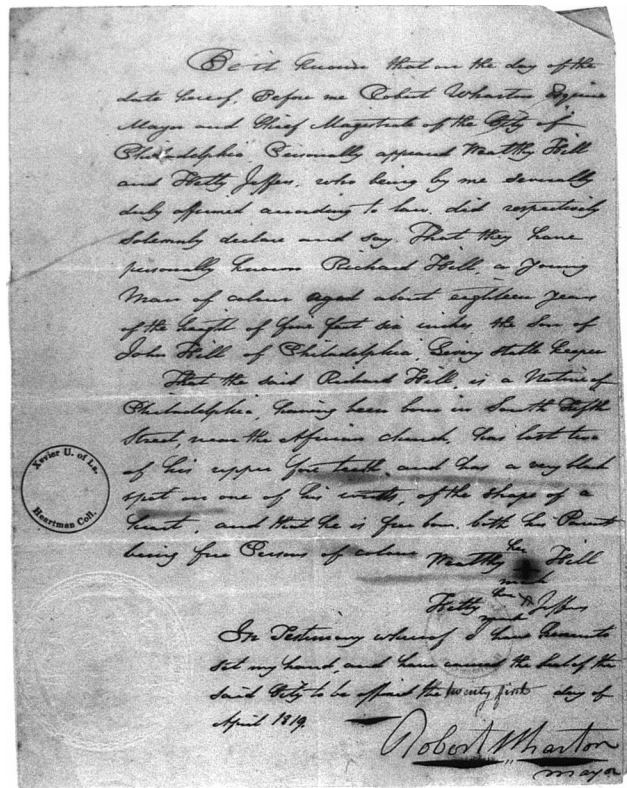 Be it known that on the day of the
date hereof, Before me Robert Wharton Esquire
Mayor and Chief Magistrate of the City of
Philadelphia Personally appeared Matthy Hill
and Hetty Jeffers, who being by me severally
duly affirmed according to law, did respectively
Solemnly declare and say. That they have
personally known Richard Hill, a young
Man of colour aged about eighteen years
of the height of five feet six inches, the Son of
John Hill of Philadelphia, Livery stable keeper
That the said Richard Hill, is a Native of
Philadelphia, having been born in South Fifth
Street, near the African church, has lost two
of his upper fore teeth, and has a very black
spot on one of his, of the shape of a
heart, and that he is free born, both his Parents
being free Persons of colour
Matthy her Hill
mark
Hetty her Jeffers
mark
In Testimony whereof I have hereunto
set my hand, and have caused the Seal of the
said City to be affixed the twenty first day of
April 1819.
Robert Wharton
Mayor
Xavier U. of La.
Heartman Coll.